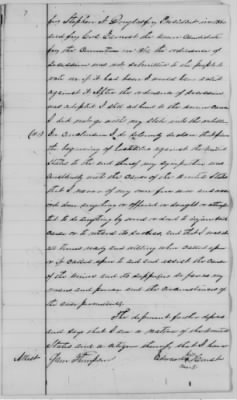 for Stephen A Douglas for President in 1860
and for
for the Convention in 1861 the ordinance of
secession was not submitted to the people to
vote on if it had been I would have voted
against it After the ordinance of secession
was adopted I still adhered to the Union cause
I did not go with my State into the rebellion
In conclusion I do solemnly declare that from
the beginning of hostilities against the United
States to the end thereof my sympathies were
constantly with the cause of the United States
that I never of my own free will and accord
did anything or offered or sought or attempt
to do anything by word or deed to injure said
cause or to retard its success and that I was at
all times ready and willing when called upon
or if called upon to aid and assist the cause
of the Union and its supporters so far as my
means and power and the circumstances of
the case permitted
The deponent further deposes
and says that I am a native of the United
States and a citizen thereof that I have
Attest